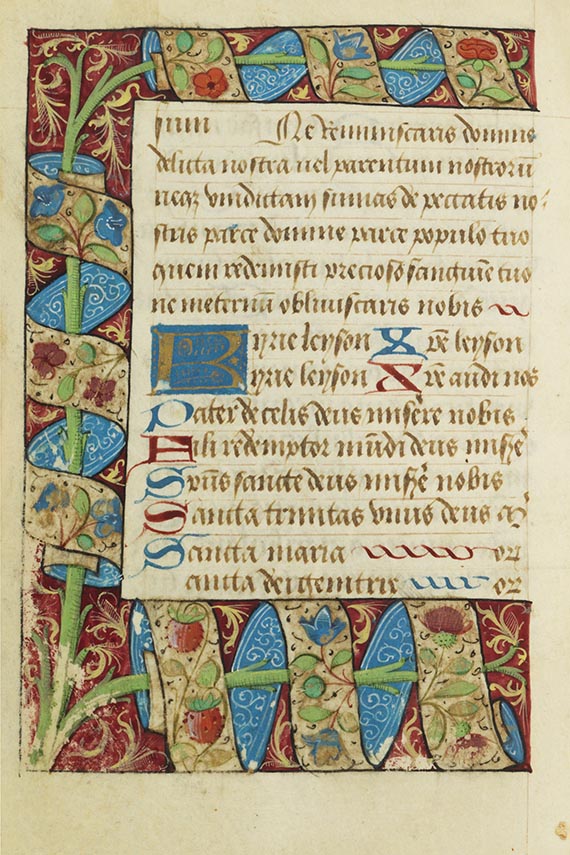 suum Ne Reminiscaris domine
delicta nostra uel parentum nostrorū
neqȝ vindictam sumas de peccatis no
stris parce domine parce populo tuo
quem redemisti precioso sanguine tuo
ne ineternū obliuiscaris nobis
Kyrie leyson Xp̄e leyson
Kyrie leyson Xp̄e audi nos
Pater de celis deus misere nobis
Fili redemptor mūdi deus mis̄e
Sp̄us sancte deus mis̄e nobis
Sancta trinitas vnus deus
Sancta maria or
Sancta dei genitrix or